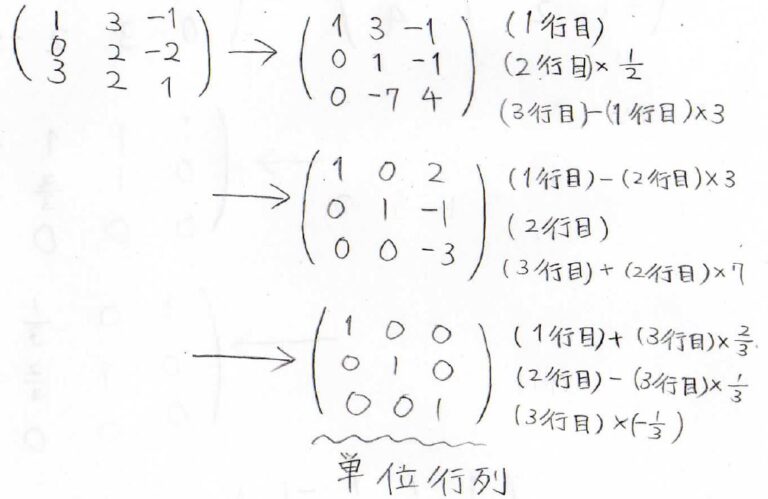 ( 1 3 -1 ) → ( 1 3 -1 ) (1行目)
( 0 2 -2 ) ( 0 1 -1 ) (2行目)× 1/2
( 3 2 1 ) ( 0 -7 4 ) (3行目)-(1行目)×3
→ ( 1 0 2 ) (1行目)-(2行目)×3
( 0 1 -1 ) (2行目)
( 0 0 -3 ) (3行目)+(2行目)×7
→ ( 1 0 0 ) (1行目)+(3行目)×2/3
( 0 1 0 ) (2行目)-(3行目)×1/3
( 0 0 1 ) (3行目)×(-1/3)
単位行列